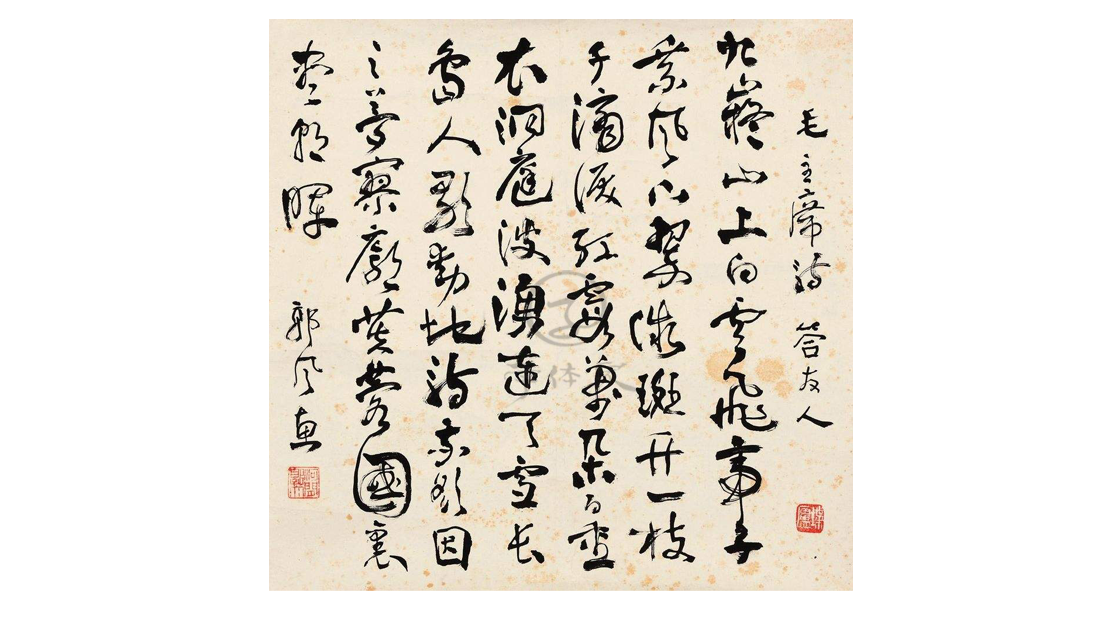 毛主席詩 答友人
九嶷山上白雲飛帝子
乘風下翠微斑竹一枝
千滴淚紅霞萬朵百重
衣洞庭波湧連天雪長
島人歌動地詩我欲因
之夢寥廓芙蓉國裏
盡朝暉 郭風惠